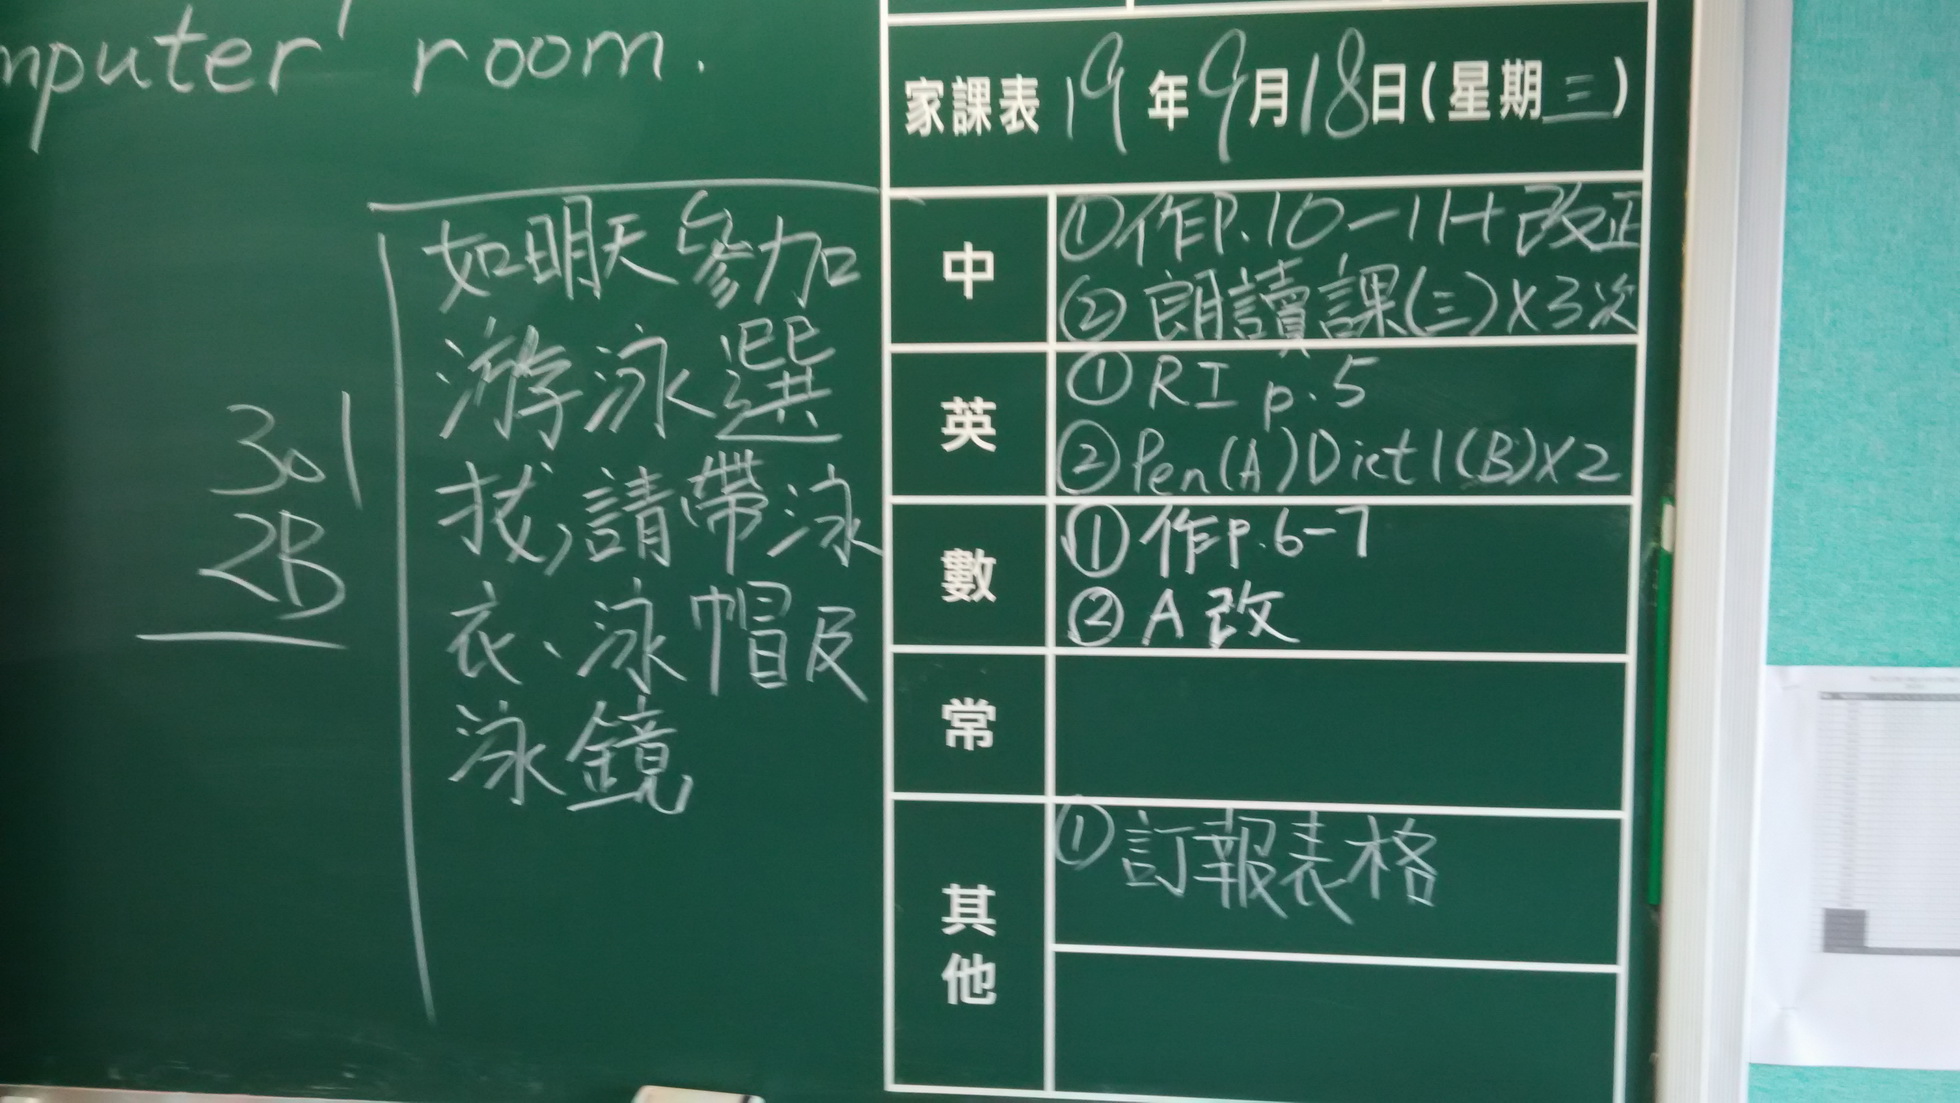 mputer room.
301
2B
如明天參加
游泳選
拔，請帶泳
衣、泳帽及
泳鏡
家課表 19年9月18日(星期三)
中
①作P.10-11+改正
②朗讀課(三)×3次
英
①RI p.5
②Pen(A)Dict1(B)×2
數
①作p.6-7
②A改
常
其他
①訂報表格